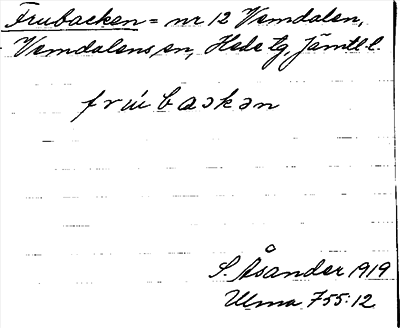 Frubacken = nr 12 Vemdalen,
Vemdalens sn, Hede tg Jämtl. l.
frúbackən
S. Åsander 1919
Ulma 755:12